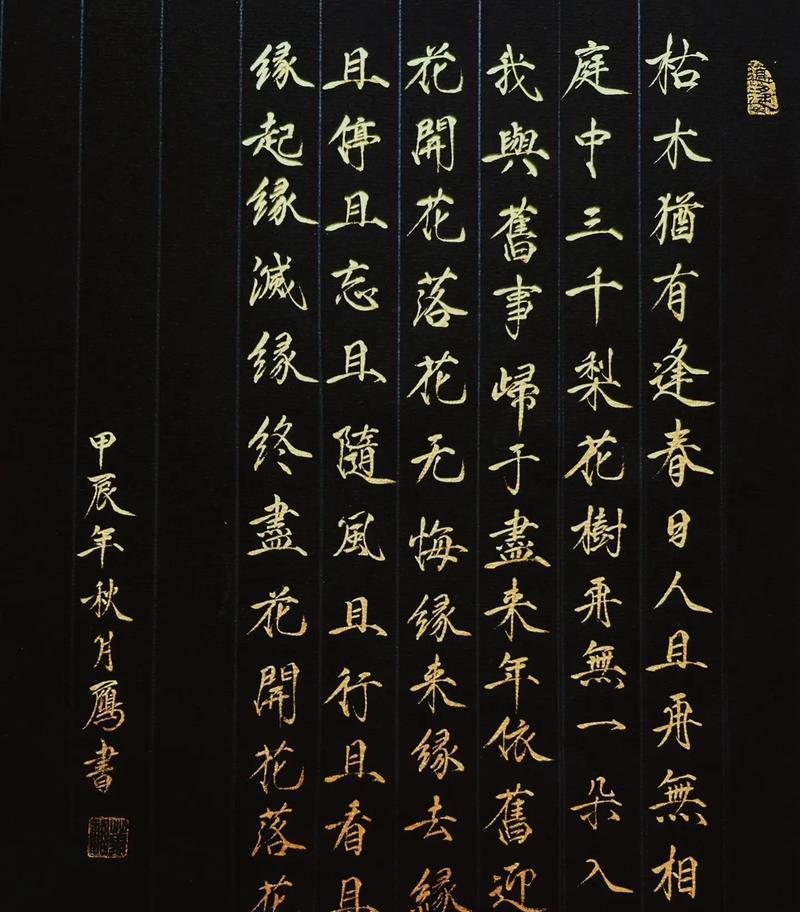 枯木猶有逢春日人且再無相
庭中三千梨花樹再無一朵入
我與舊事歸于盡来年依舊迎
花開花落花无悔縁来縁去縁
且停且忘且隨風且行且看且
縁起縁滅縁終盡花開花落花
甲辰年秋月鴈書